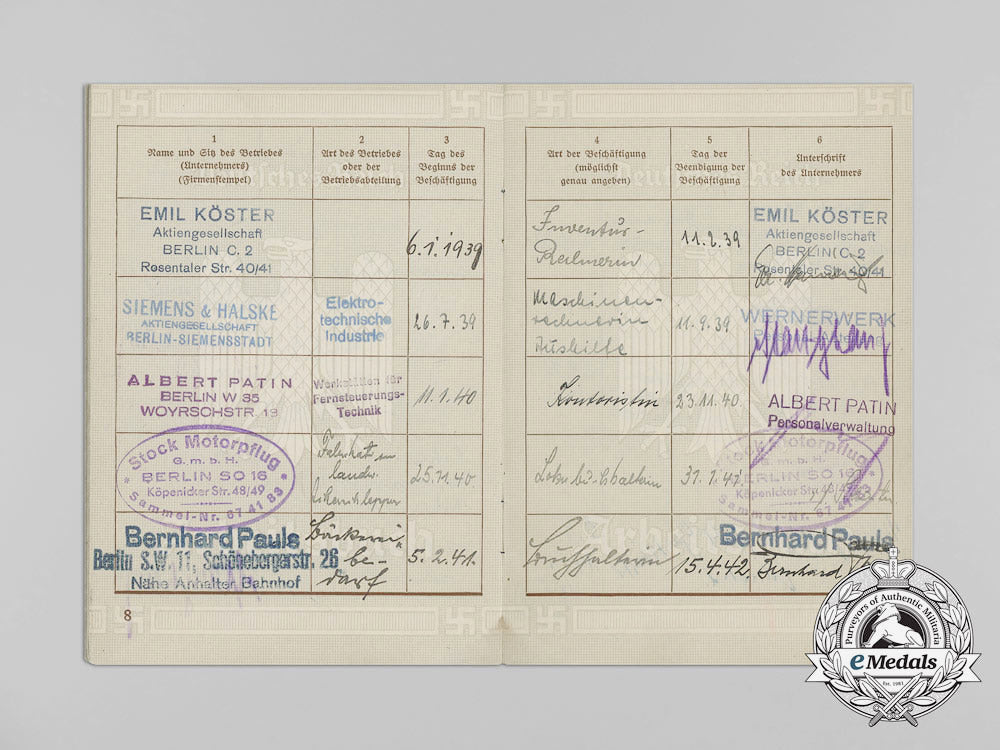 1
Name und Sitz des Betriebes
(Unternehmers)
(Firmenstempel)
2
Art des Betriebes
oder der
Betriebsabteilung
3
Tag des
Beginns der
Beschäftigung
4
Art der Beschäftigung
(möglichst
genau angeben)
5
Tag der
Beendigung der
Beschäftigung
6
Unterschrift
des Unternehmers
EMIL KÖSTER
Aktiengesellschaft
BERLIN C. 2
Rosentaler Str. 40/41
6.1.1939
Inventur-
11.2.39
EMIL KÖSTER
Aktiengesellschaft
BERLIN C. 2
Rosentaler Str. 40/41
SIEMENS & HALSKE
AKTIENGESELLSCHAFT
BERLIN-SIEMENSSTADT
Elektro-
technische
Industrie
26.7.39
Maschinen-
rechnerin
Aushilfe
11.9.39
WERNERWERK
ALBERT PATIN
BERLIN W 35
WOYRSCHSTR. 13
Werkstätten für
Fernsteuerungs-
Technik
11.1.40
Kontoristin
23.11.40
ALBERT PATIN
Personalverwaltung
Stock Motorpflug
G.m.b.H.
BERLIN SO 16
Köpenicker Str. 48/49
Sammel-Nr. 67 41 83
25.11.40
31.1.41
Stock Motorpflug
G.m.b.H.
BERLIN SO 16
Köpenicker Str. 48/49
Sammel-Nr. 67 41 83
Bernhard Pauls
Berlin S.W. 11, Schönebergerstr. 26
Nähe Anhalter Bahnhof
Bäckerei-
be-
darf
5.2.41.
Buchhalterin
15.4.42.
Bernhard Pauls
Bernhard
8
Purveyors of Authentic Militaria
eMedals